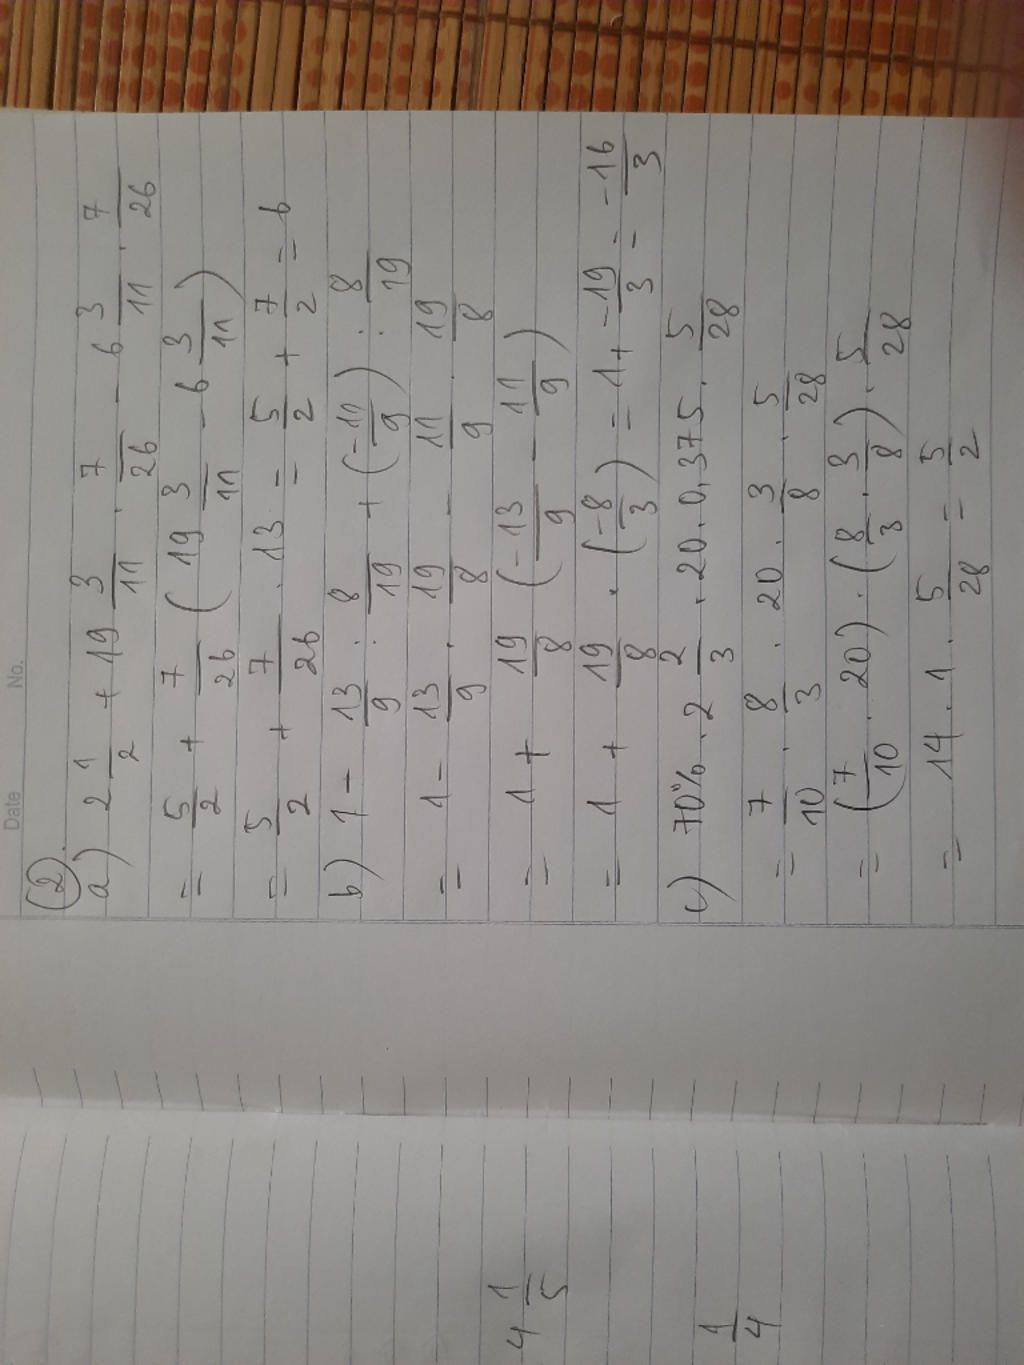 Date No.
(2)
a) 2 1/2 + 19 3/11 . 7/26 - 6 3/11 . 7/26
= 5/2 + 7/26 ( 19 3/11 - 6 3/11 )
= 5/2 + 7/26 . 13 = 5/2 + 7/2 = 6
b) 1 - 13/9 : 8/19 + (-11/9) : 8/19
= 1 - 13/9 . 19/8 - 11/9 . 19/8
= 1 + 19/8 (-13/9 - 11/9)
= 1 + 19/8 . (-8/3) = 1 + -19/3 = -16/3
c) 70% . 2 2/3 . 20 . 0,375 . 5/28
= 7/10 . 8/3 . 20 . 3/8 . 5/28
= (7/10 . 20) . (8/3 . 3/8) . 5/28
= 14 . 1 . 5/28 = 5/2
4 1/5
1/4